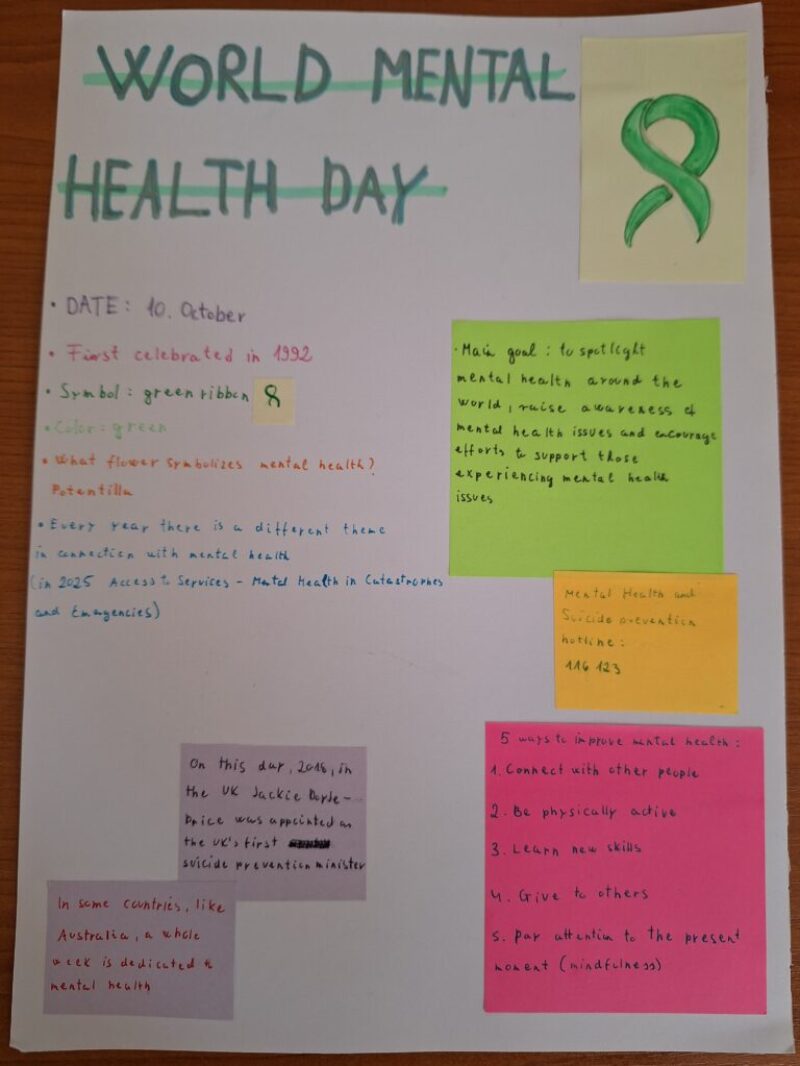 WORLD MENTAL
HEALTH DAY
• DATE: 10. October
• First celebrated in 1992
• Symbol: green ribbon
• Color: green
• What flower symbolizes mental health?
Potentilla
• Every year there is a different theme
in connection with mental health
(in 2025 Access to Services - Mental Health in Catastrophes
and Emergencies)
• Main goal: to spotlight
mental health around the
world, raise awareness of
mental health issues and encourage
efforts to support those
experiencing mental health
issues
Mental Health and
Suicide prevention
hotline:
116 123
On this day, 2018, in
the UK Jackie Doyle-
Price was appointed as
the UK's first
suicide prevention minister
In some countries, like
Australia, a whole
week is dedicated to
mental health
5 ways to improve mental health:
1. Connect with other people
2. Be physically active
3. Learn new skills
4. Give to others
5. Pay attention to the present
moment (mindfulness)